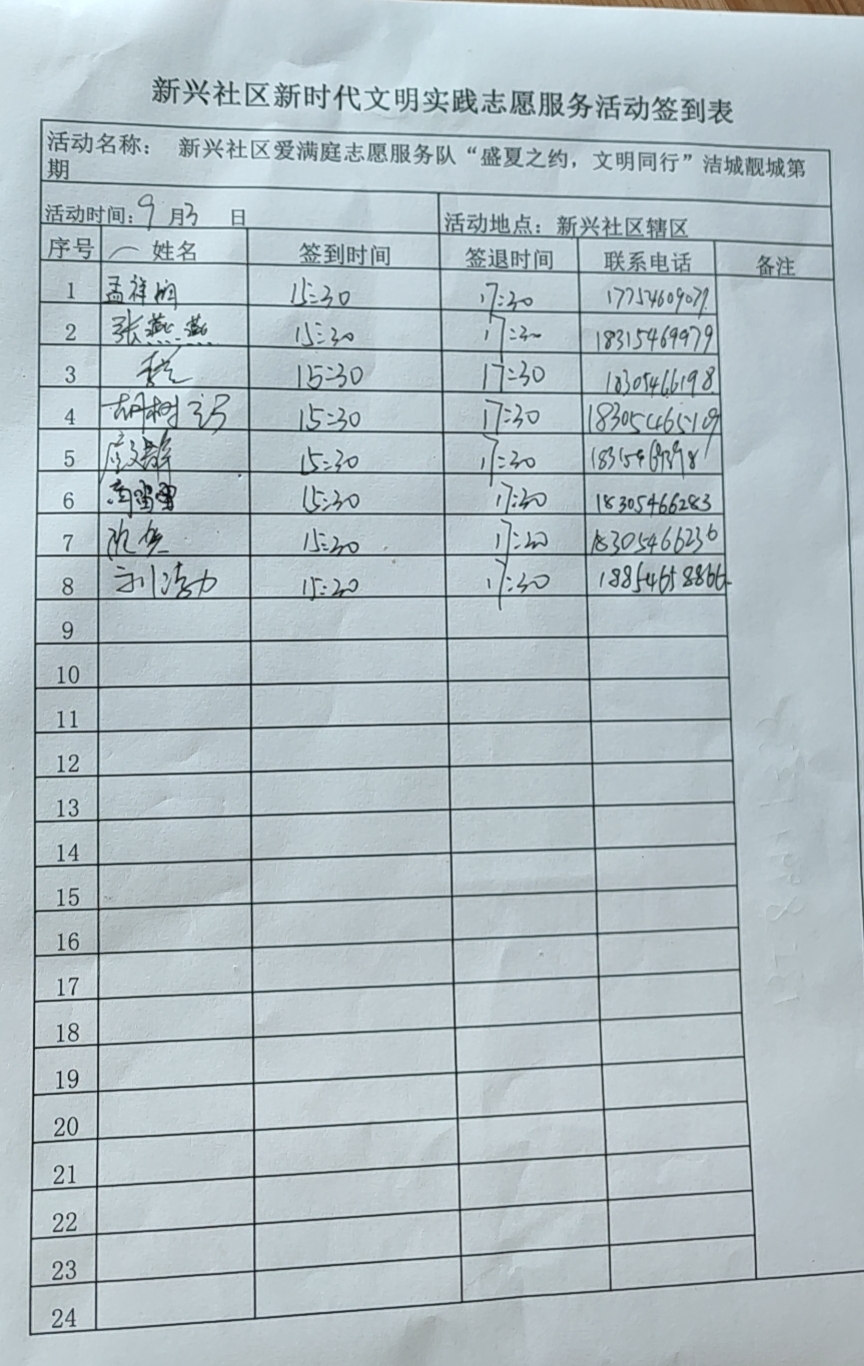 新兴社区新时代文明实践志愿服务活动签到表
活动名称： 新兴社区爱满庭志愿服务队“盛夏之约，文明同行”洁城靓城第
期
活动时间：9 月3 日 活动地点：新兴社区辖区
序号 姓名 签到时间 签退时间 联系电话 备注
1 孟祥 15:30 17:30 17754609079
2 张燕燕 15:30 17:30 18315469979
3 15:30 17:30 18305466198
4 胡树 15:30 17:30 18305465109
5 15:30 17:30
6 15:30 17:30 18305466283
7 15:30 17:30 18305466236
8 15:30 17:30 18854658866
9
10
11
12
13
14
15
16
17
18
19
20
21
22
23
24